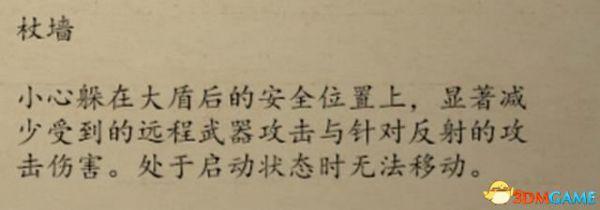 杖墙
小心躲在大盾后的安全位置上，显著减
少受到的远程武器攻击与针对反射的攻
击伤害。处于启动状态时无法移动。
3DMGAME